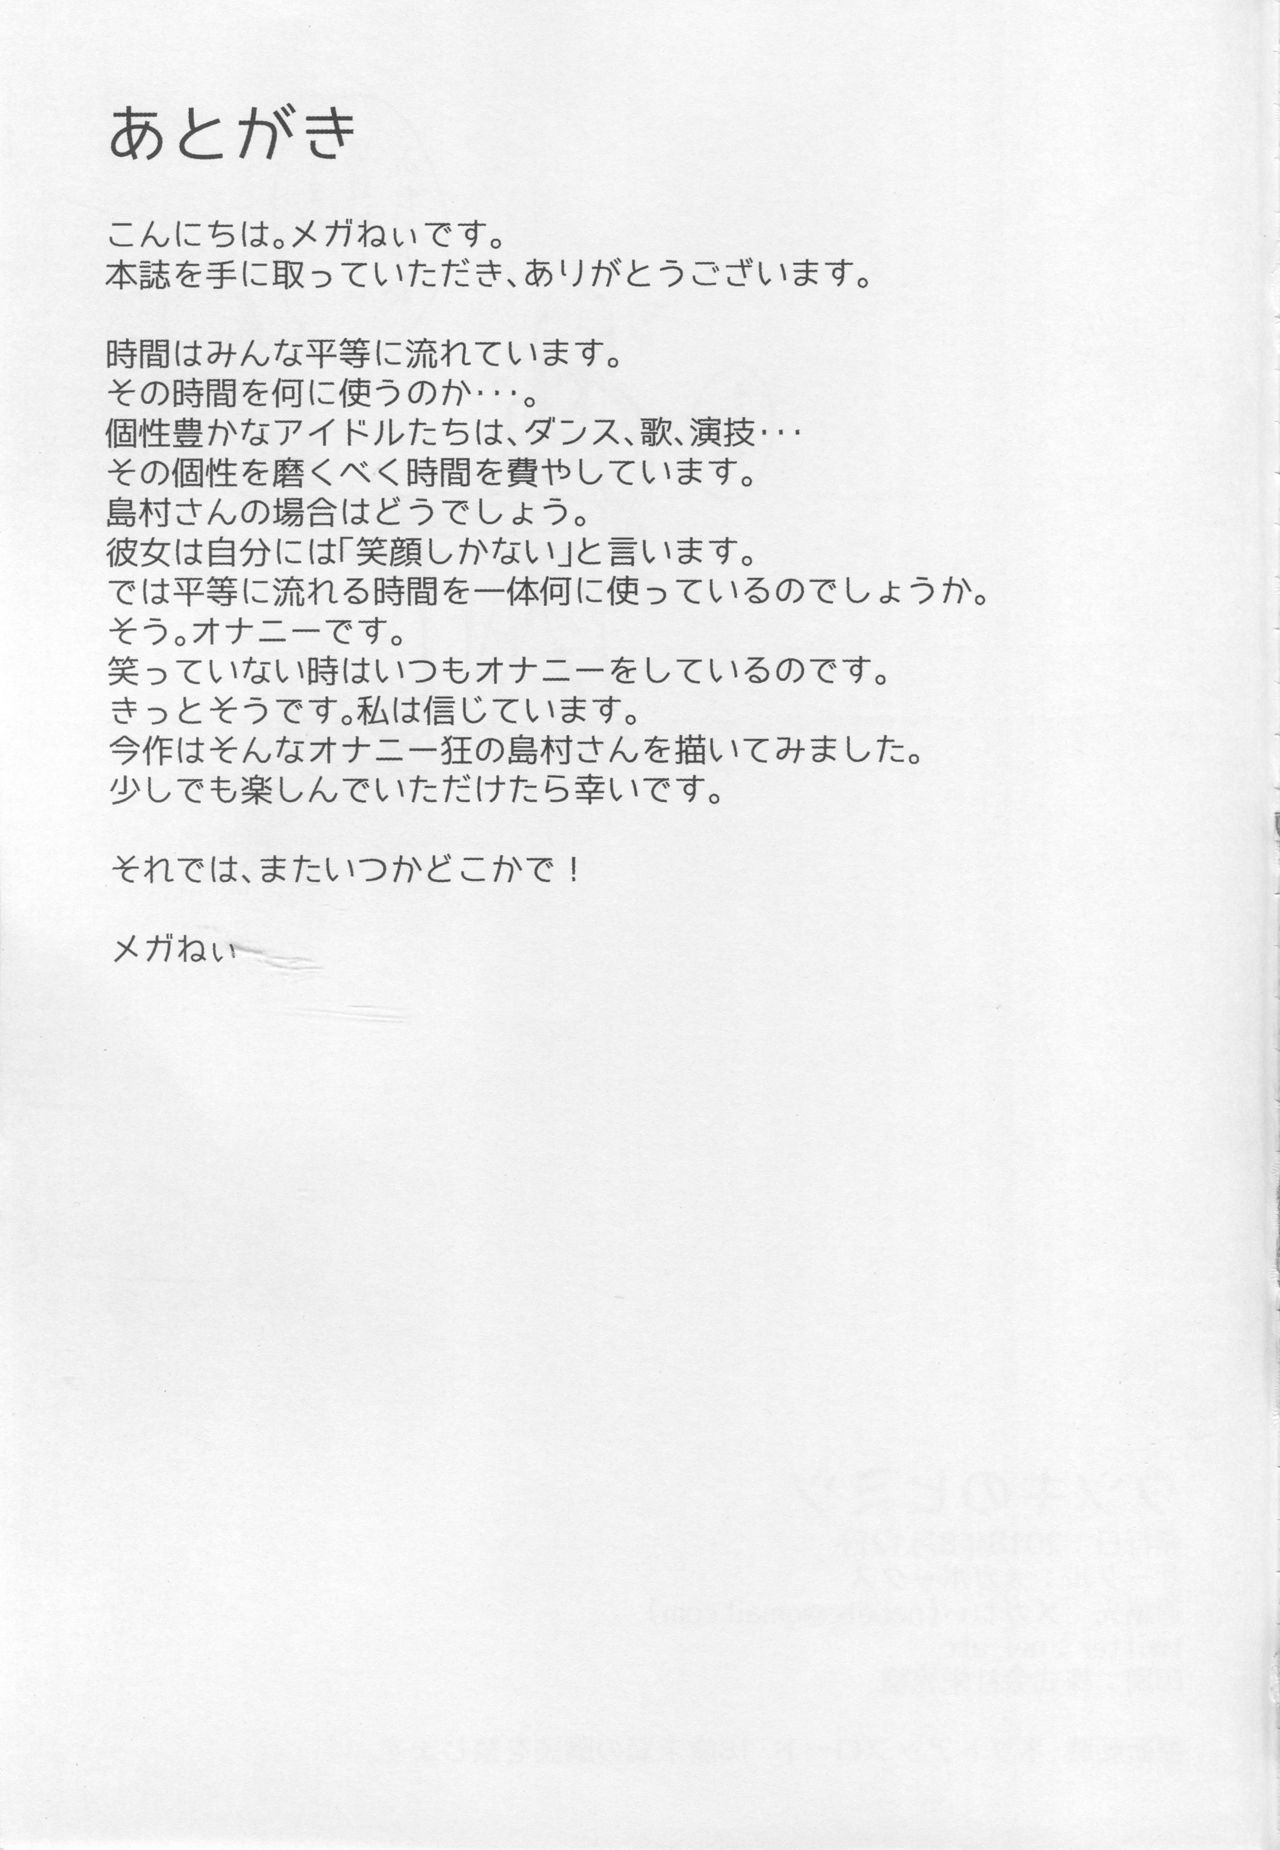 あとがき
こんにちは。メガねぃです。
本誌を手に取っていただき、ありがとうございます。
時間はみんな平等に流れています。
その時間を何に使うのか･･･。
個性豊かなアイドルたちは、ダンス、歌、演技･･･
その個性を磨くべく時間を費やしています。
島村さんの場合はどうでしょう。
彼女は自分には「笑顔しかない」と言います。
では平等に流れる時間を一体何に使っているのでしょうか。
そう。オナニーです。
笑っていない時はいつもオナニーをしているのです。
きっとそうです。私は信じています。
今作はそんなオナニー狂の島村さんを描いてみました。
少しでも楽しんでいただけたら幸いです。
それでは、またいつかどこかで！
メガねぃ